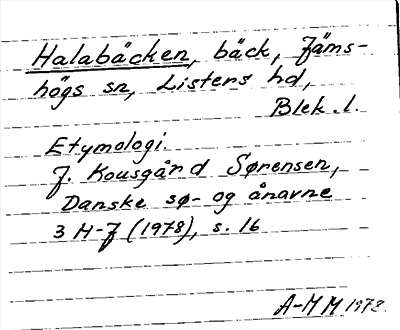 Halabäcken, bäck, Jäms-
högs sn, Listers hd,
Blek. l.
Etymologi.
J. Kousgård Sørensen,
Danske sø- og ånavne
3 H-J (1978), s. 16
A-M M 1978.